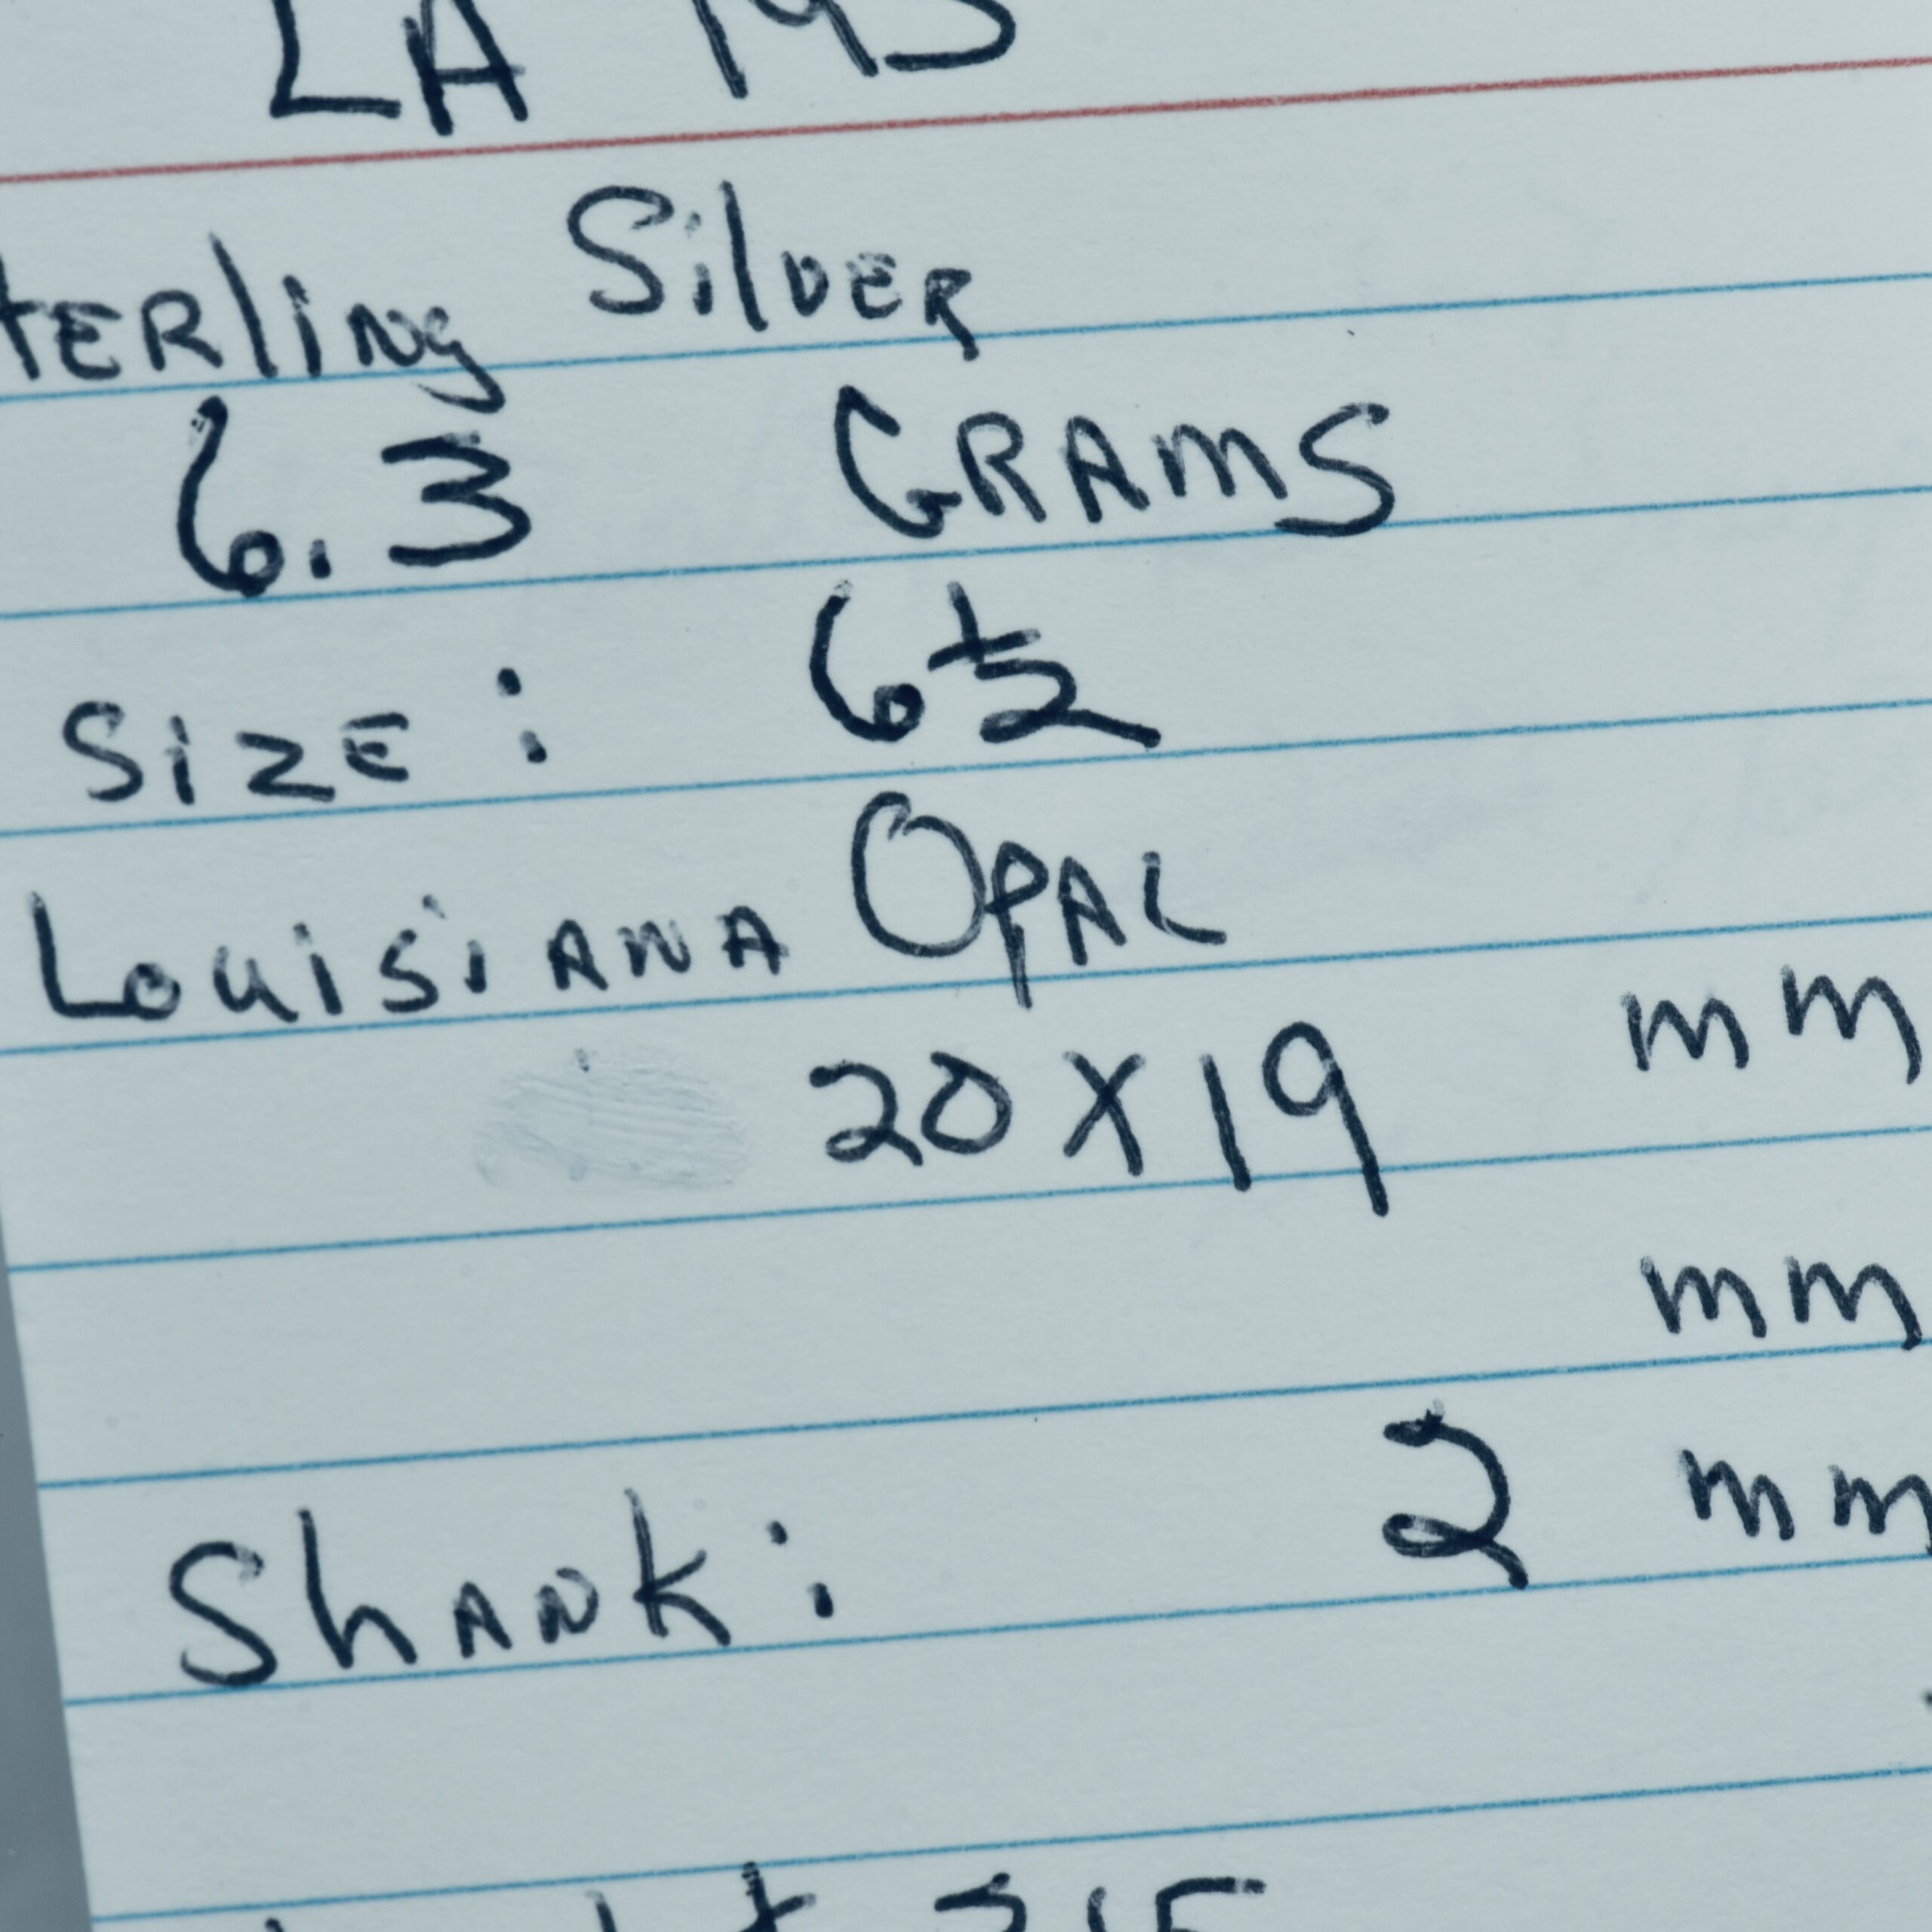 LA
Sterling Silver
6.3 GRAMS
Size: 6½
Louisiana Opal
20 x 19 mm
mm
Shank: 2 mm